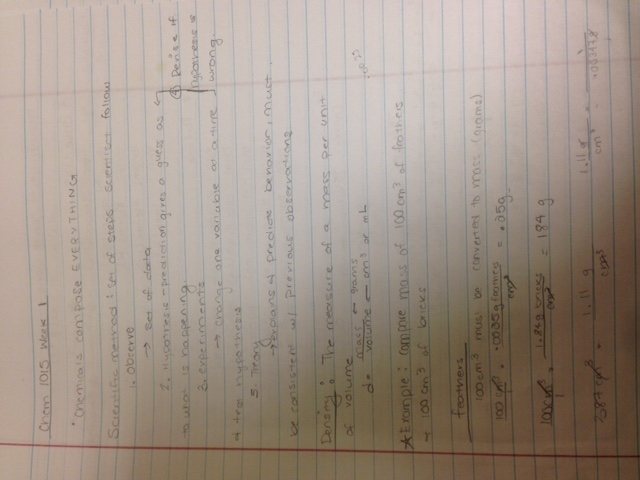 Chem 1015 Week 1
• Chemicals compose EVERYTHING
Scientific method: set of steps scientist follow
1. Observe
→ set of data
2. Hypothesis → prediction gives a guess as
to what is happening
④ Revise if
hypothesis is
wrong
3. experiments
→ change one variable at a time
& tests hypothesis
5. Theory
→ explains & predicts behavior, must
be consistent w/ previous observations
Density: The measure of a mass per unit
of volume
d = mass ← grams
volume ← cm³ or mL
★Example: compare mass of 100 cm³ of feathers
~ 100 cm³ of bricks
feathers
100 cm³ must be converted to mass (grams)
100 cm³ • .0025g feathers = .25g
cm³
100 cm³ 1.84g bricks = 184 g
cm³
cm³ = 1.11 g
cm³
1.11 g
cm³